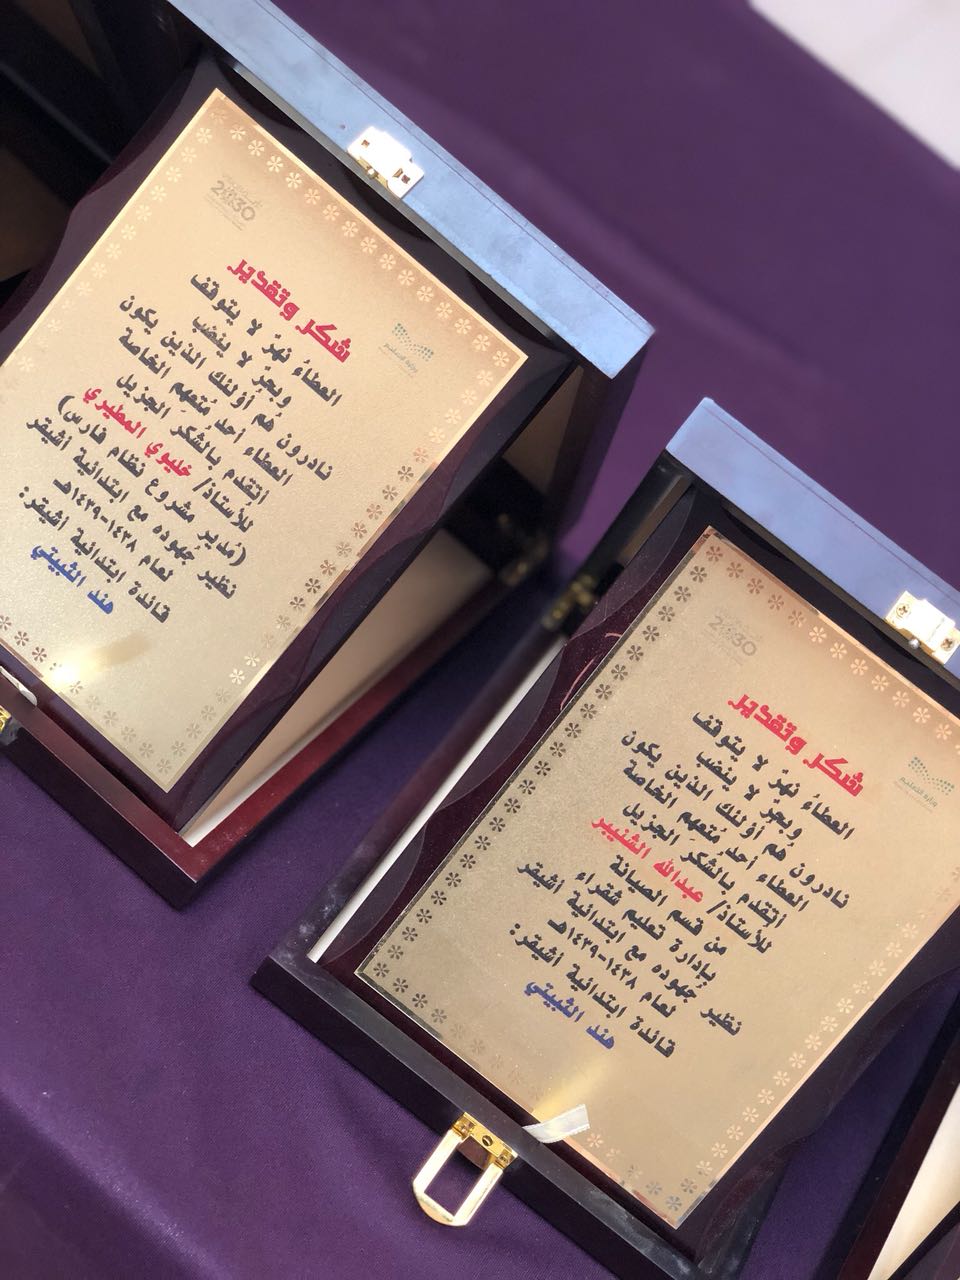 2030
وزارة التعليم
شكر وتقدير
العطاءُ نهرٌ لا يتوقف
وبحرٌ لا ينضب
نادرون هُم أولئك الذين يكون
العطاء أحدُ مُتعهِم الخاصة
أتقدم بالشكر الجزيل
للأستاذ/ خليوي المطيري
(مدير مشروع نظام فارس)
نظير جهوده مع ابتدائية أشيقر
لعام ١٤٣٨-١٤٣٩هـ
قائدة ابتدائية أشيقر:
هند الثبيتي
2030
وزارة التعليم
شكر وتقدير
العطاءُ نهرٌ لا يتوقف
وبحرٌ لا ينضب
نادرون هُم أولئك الذين يكون
العطاء أحدُ مُتعهِم الخاصة
أتقدم بالشكر الجزيل
للأستاذ/ عبدالله الشنيبر
من قسم الصيانة
بإدارة تعليم شقراء
نظير جهوده مع ابتدائية أشيقر
لعام ١٤٣٨-١٤٣٩هـ
قائدة ابتدائية أشيقر:
هند الثبيتي